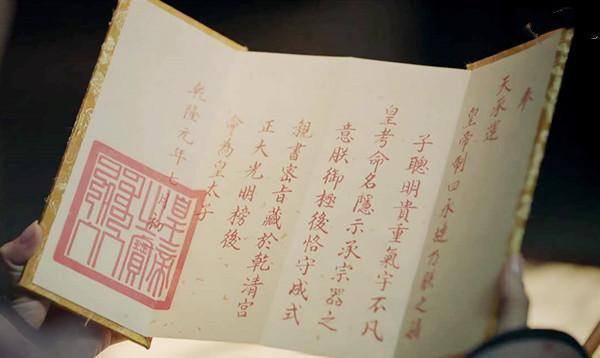 奉
天承運
皇帝制曰永璉乃朕之嫡
子聰明貴重氣宇不凡
皇考命名隱示承宗器之
意朕御極後恪守成式
親書密旨藏於乾清宮
正大光明榜後
為皇太子
乾隆元年七月初
皇帝之寶